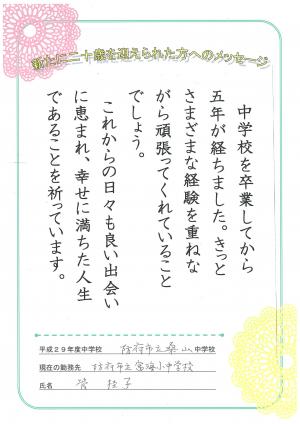 新たに二十歳を迎えられた方へのメッセージ
中学校を卒業してから
五年が経ちました。きっと
さまざまな経験を重ねな
がら頑張ってくれていること
でしょう。
これからの日々も良い出会い
に恵まれ、幸せに満ちた人生
であることを祈っています。
平成29年度中学校 防府市立桑山中学校
現在の勤務先 防府市立富海小中学校
氏名 菅 桂子